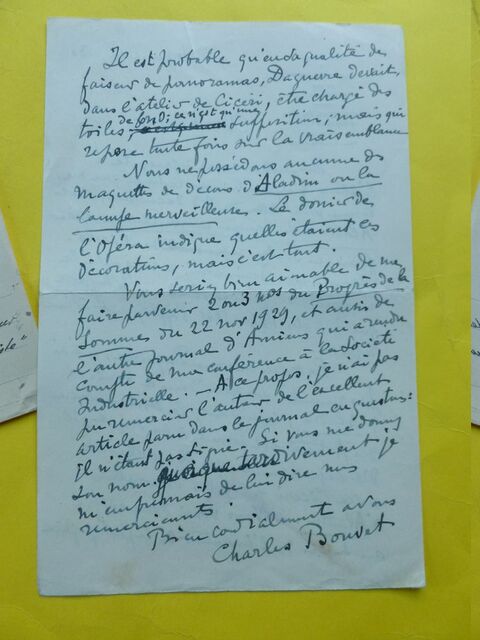 Il est probable qu'en sa qualité de
faiseur de panoramas, Daguerre devait,
dans l'atelier de Ciceri, être chargé des
toiles de fond; ce n'est qu'une supposition, mais qui
repose toute fois sur la vraisemblance
Nous ne possédons aucune des
maquettes de décors d'Aladin ou la
lampe merveilleuse. Le dossier de
l'Opéra indique quelles étaient ces
décorations, mais c'est tout.
Vous seriez bien aimable de me
faire parvenir 2 ou 3 nos du Progrès de la
Somme du 22 nov 1929, et autant de
l'autre journal d'Amiens qui a rendu
compte de ma conférence à la Société
Industrielle. — A ce propos, je n'ai pas
pu remercier l'auteur de l'excellent
article paru dans le journal en question:
il n'était pas signé. Si vous me donnez
son nom, quoique tardivement je
m'empresserais de lui dire mes
remerciements.
Bien cordialement à vous
Charles Bouvet